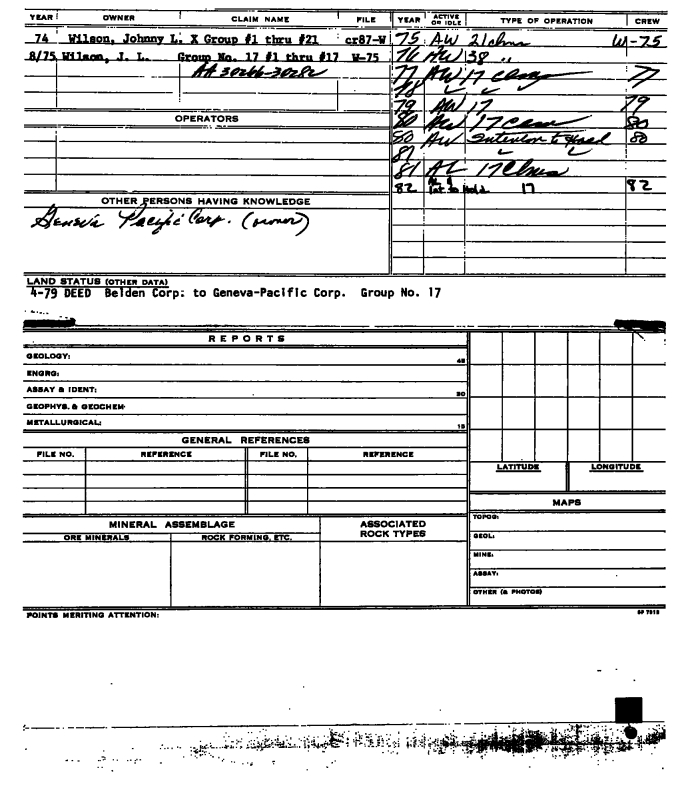 YEAR OWNER CLAIM NAME FILE YEAR ACTIVE OR IDLE TYPE OF OPERATION CREW
74 Wilson, Johnny L. X Group #1 thru #21 cr87-W 75 AW 21 clms W-75
8/75 Wilson, J. L. Group No. 17 #1 thru #17 W-75 76 AW 38 "
AA 30266-30282 77 AW 17 77
78
79 AW 17 79
OPERATORS 80 AW 17 80
80 AW Intention to Hold 80
81
81 AL 17 Clms
82 AL & Int to Hold 17 82
OTHER PERSONS HAVING KNOWLEDGE
Geneva Pacific Corp. (owner)
LAND STATUS (OTHER DATA)
4-79 DEED Belden Corp: to Geneva-Pacific Corp. Group No. 17
REPORTS
GEOLOGY: 45
ENGRG:
ASSAY & IDENT: 30
GEOPHYS. & GEOCHEM:
METALLURGICAL: 15
GENERAL REFERENCES
FILE NO. REFERENCE FILE NO. REFERENCE
LATITUDE LONGITUDE
MAPS
MINERAL ASSEMBLAGE ASSOCIATED ROCK TYPES TOPOG:
ORE MINERALS ROCK FORMING, ETC. GEOL:
MINE:
ASSAY:
OTHER (& PHOTOS)
POINTS MERITING ATTENTION: